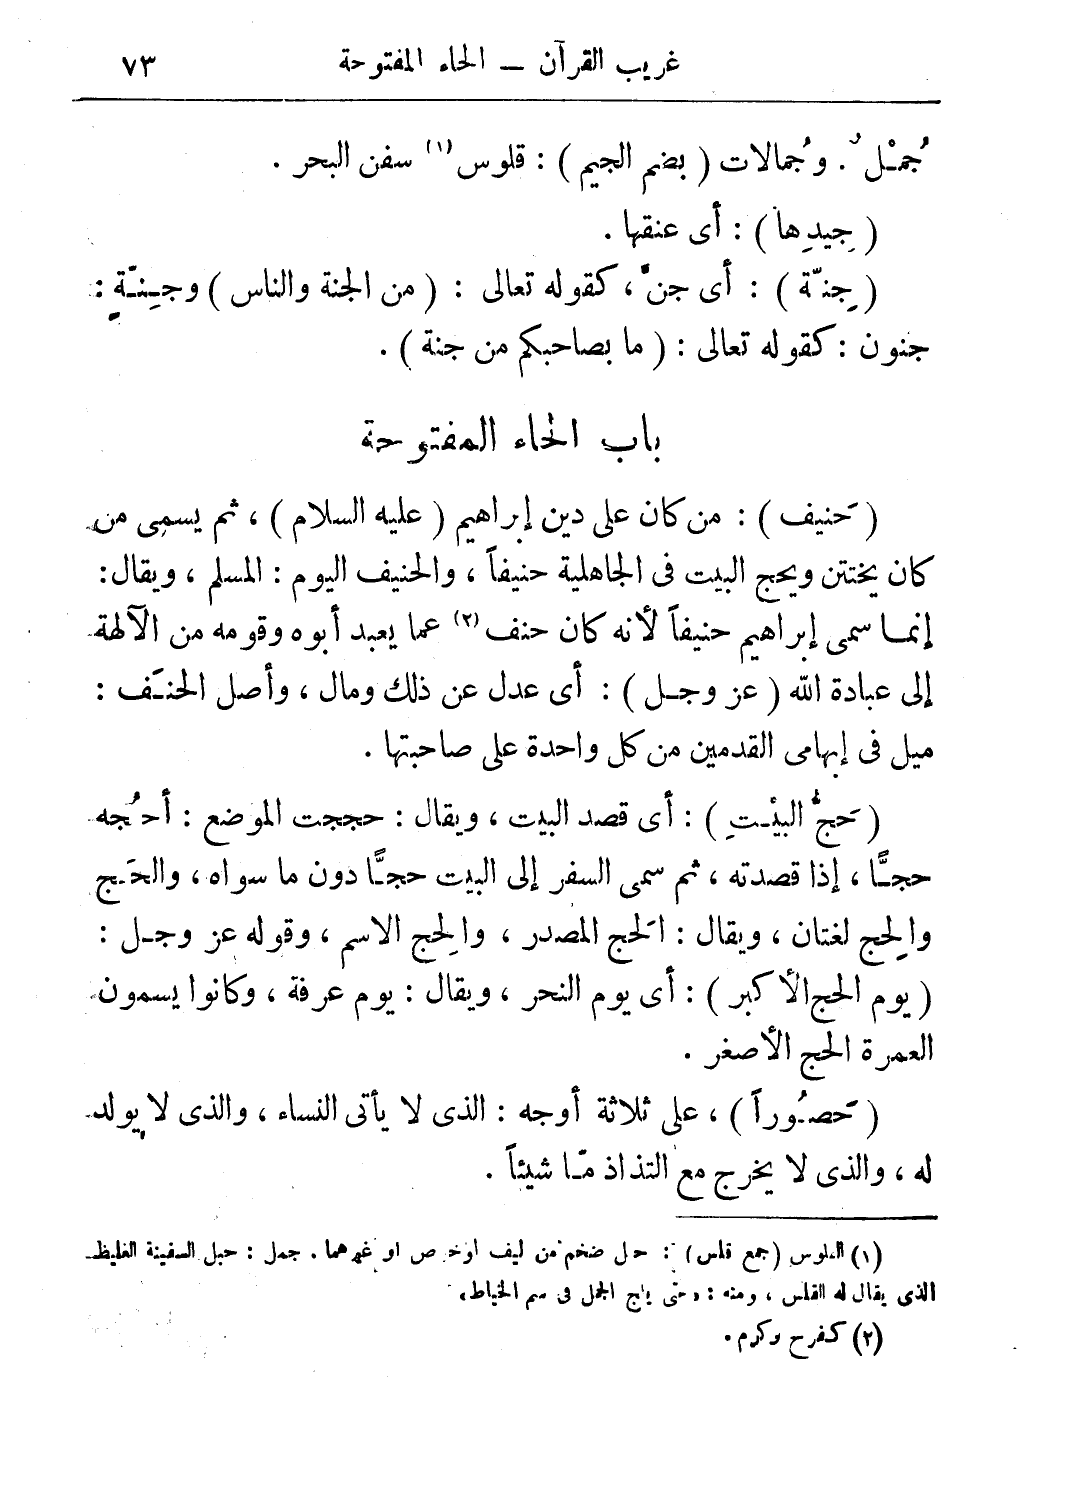 غريب القرآن — الحاء المفتوحة ٧٣
جُمْلٌ . وجُمالات ( بضم الجيم ) : قلوس (١) سفن البحر .
( جِيدِها ) : أى عنقها .
( جِنّة ) : أى جن ، كقوله تعالى : ( من الجنة والناس ) وجِنّةٍ :
جنون : كقوله تعالى : ( ما بصاحبكم من جنة ) .
باب الحاء المفتوحة
( حَنيف ) : من كان على دين إبراهيم ( عليه السلام ) ، ثم يسمى من
كان يختتن ويحج البيت فى الجاهلية حنيفاً ، والحنيف اليوم : المسلم ، ويقال :
إنمـا سمى إبراهيم حنيفاً لأنه كان حنف (٢) عما يعبد أبوه وقومه من الآلهة
إلى عبادة الله ( عز وجـل ) : أى عدل عن ذلك ومال ، وأصل الحنَـف :
ميل فى إبهامى القدمين من كل واحدة على صاحبتها .
( حَجُّ البيْـتِ ) : أى قصد البيت ، ويقال : حججت الموضع : أحُجه
حجـًّا ، إذا قصدته ، ثم سمى السفر إلى البيت حجـًّا دون ما سواه ، والحَـج
والحِج لغتان ، ويقال : الَحج المصدر ، والحِج الاسم ، وقوله عز وجـل :
( يوم الحج الأكبر ) : أى يوم النحر ، ويقال : يوم عرفة ، وكانوا يسمون
العمرة الحج الأصغر .
( حَصُوراً ) ، على ثلاثة أوجه : الذى لا يأتى النساء ، والذى لا يولد
له ، والذى لا يخرج مع التذاذ مّـا شيئاً .
(١) القلوس (جمع قلس) : حبل ضخم من ليف أو خوص أو غيرهما . جمل : حبل السفينة الغليظ
الذى يقال له القلس ، ومنه : «حتى يلج الجمل فى سم الخياط»
(٢) كفرح وكرم .